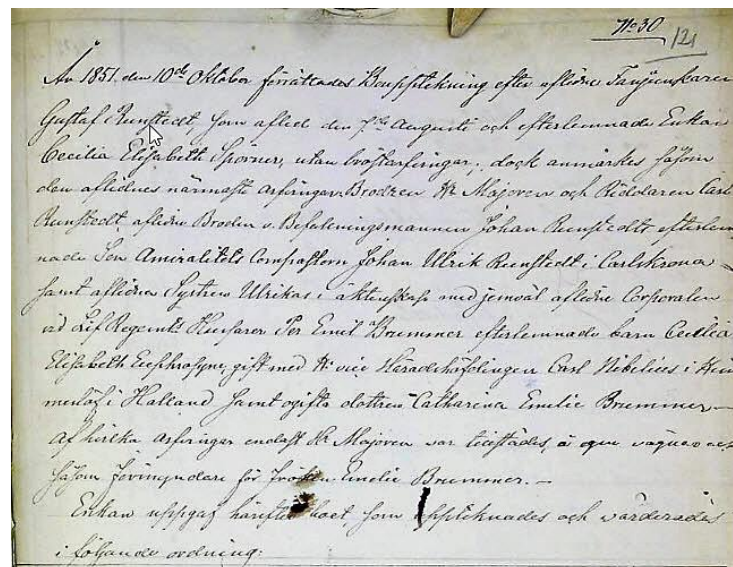 No 30
121
År 1851. den 10de Oktober förrättades Bouppteckning efter aflidne Fanjunkaren
Gustaf Runstedt, som afled den 7de Augusti och efterlemnade Enkan
Cecilia Elisabeth Spörner, utan bröstarfvingar; dock anmärkes såsom
den aflidnes närmaste arfvingar: Brodren Hr Majoren och Riddaren Carl
Runstedt aflidne Broden v. Befalningsmannen Johan Runstedts efterlem
nade Son Amiralitets Compastorn Johan Ulrik Runstedt i Carlskrona
samt aflidna Systren Ulrikas i äktenskap med jemväl aflidne Corporalen
vid Lif Regemts Husarer Per Emil Brummer efterlemnade barn Cecilia
Elisabeth Euphrosyne, gift med Hr vice Häradshöfdingen Carl Nibelius i
i Halland samt ogifta dottren Catharina Emilie Brummer,—
Af hvilka arfvingar endast Hr Majoren var tillstädes, å egna vägnar och
såsom Förmyndare för Fröken Emelie Brummer.—
Enkan uppgaf härefter boet, som upptecknades och värderades
i följande ordning: